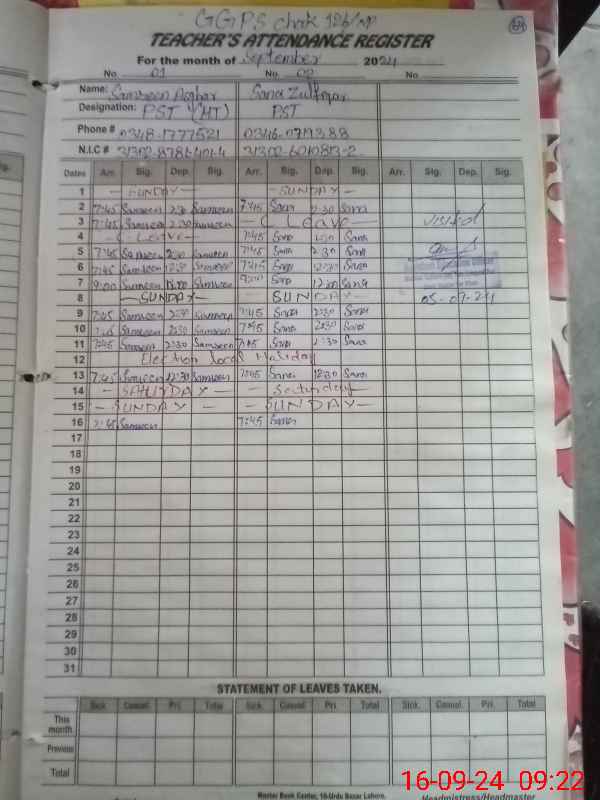 GGPS chak 126/NP
TEACHER'S ATTENDANCE REGISTER
For the month of September 2024
No. 01 No. 02 No.
Name: Samreen Asghar Sana Zulfiqar
Designation: PST (HT) PST
Phone # 0348-1777521 0346-0719388
N.I.C # 31302-8781-401-4 31302-6010813-2
Dates Arr. Sig. Dep. Sig. Arr. Sig. Dep. Sig. Arr. Sig. Dep. Sig.
1 — SUNDAY — — SUNDAY —
2 7:45 Samreen 2:30 Samreen 7:45 Sana 2:30 Sana
3 7:45 Samreen 2:30 Samreen — C Leave — visited
4 — C Leave — 7:45 Sana 2:30 Sana
5 7:45 Samreen 2:30 Samreen 7:45 Sana 2:30 Sana
6 7:45 Samreen 12:30 Samreen 7:45 Sana 12:30 Sana
7 9:00 Samreen Samreen 9:00 Sana 12:00 Sana
8 — SUNDAY — — SUNDAY — 05-09-24
9 7:45 Samreen 2:30 Samreen 7:45 Sana 2:30 Sana
10 7:45 Samreen 2:30 Samreen 7:45 Sana 2:30 Sana
11 7:45 Samreen 2:30 Samreen 7:45 Sana 2:30 Sana
12 Election local Holiday
13 7:45 Samreen 12:30 Samreen 7:45 Sana 12:30 Sana
14 — SATURDAY — — Saturday —
15 — SUNDAY — — SUNDAY —
16 7:45 Samreen 7:45 Sana
17
18
19
20
21
22
23
24
25
26
27
28
29
30
31
STATEMENT OF LEAVES TAKEN.
Sick. Casual. Pri. Total Sick. Casual Pri. Total Sick. Casual. Pri. Total
This month
Previous
Total
Master Book Center, 16-Urdu Bazar Lahore.
Headmistress/Headmaster
16-09-24 09:22